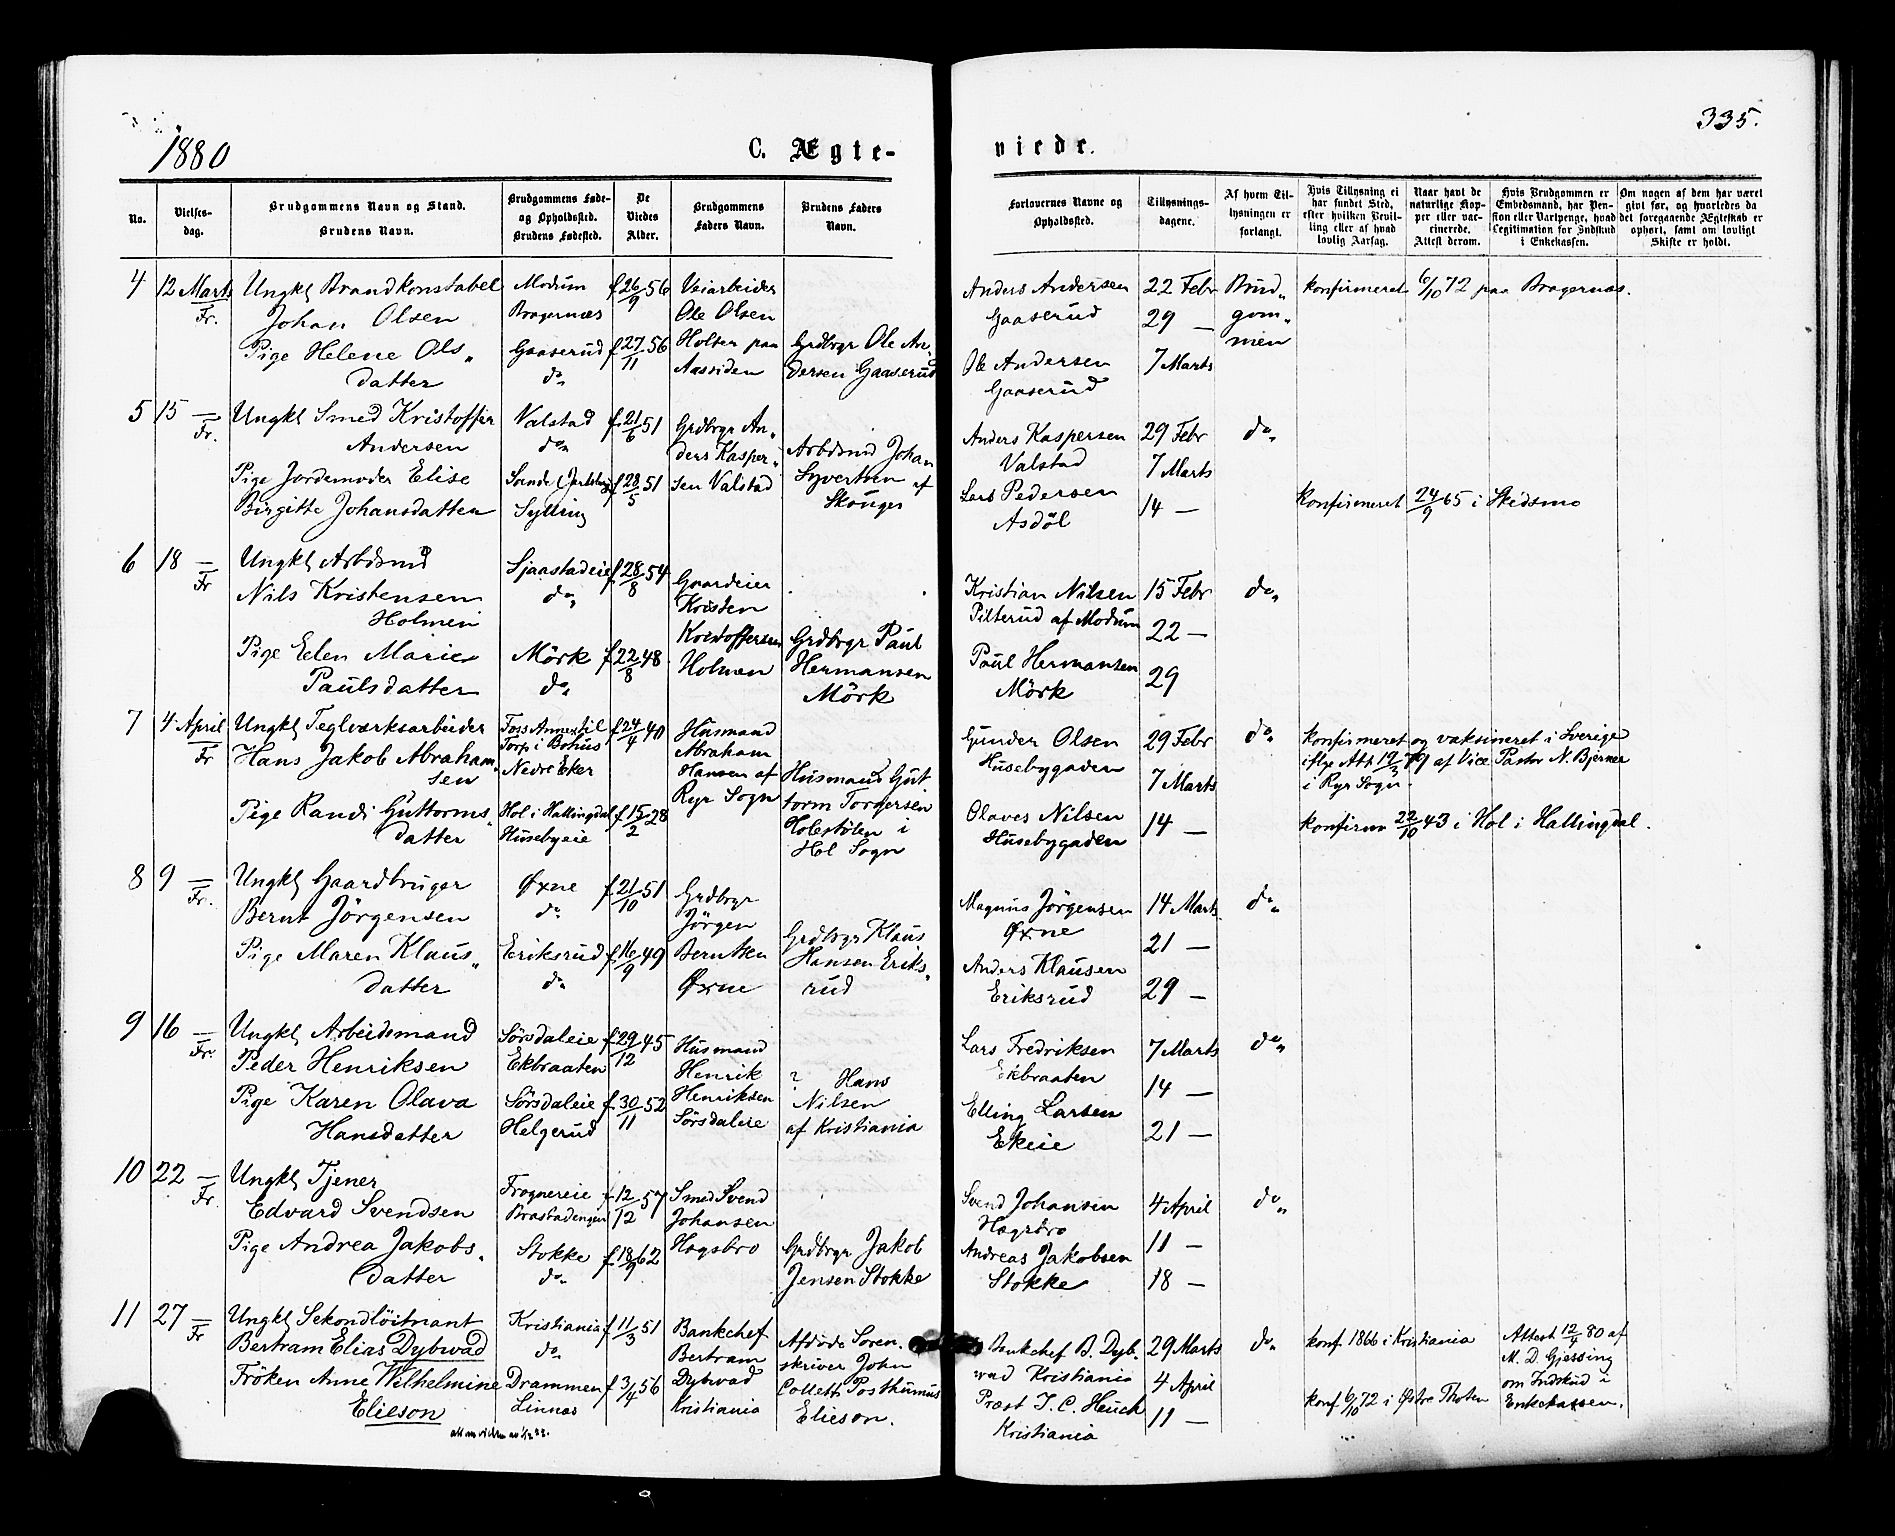 335.
1880
C. Ægte-
viede.
No.
Vielses-
dag.
Brudgommens Navn og Stand.
Brudens Navn.
Brudgommens Føde-
og Opholdsted.
Brudens Fødested.
De
Viedes
Alder.
Brudgommens
Faders Navn.
Brudens Faders
Navn.
Forlovernes Navne og
Opholdsted.
Tillysnings-
dagene.
Af hvem Til-
lysningen er
forlangt.
Hvis Tillysning ei
har fundet Sted,
efter hvilken Bevil-
ling eller af hvad
lovlig Aarsag.
Naar havt de
naturlige Kop-
per eller vac-
cinerede.
Attest derom.
Hvis Brudgommen er
Embedsmand, har Pen-
sion eller Vartpenge, hvad
Legitimation for Indskud
i Enkekassen.
Om nogen af dem har været
gift før, og hvorledes da
det foregaaende Ægteskab er
ophørt, samt om lovligt
Skifte er holdt.
4
12 Marts
Fr.
Ungkl Brandkonstabel
Johan Olsen
Pige Helene Ols„
datter
Modum
Bragernæs
Gaaserud
do„
f 26/9 56
f 27/11 56
Veiarbeider
Ole Olsen
Holter paa
Aassiden
Grdbrgr Ole An„
dersen Gaaserud
Anders Andersen
Gaaserud
Ole Andersen
Gaaserud
22 Febr
29 —
7 Marts
Brud„
gom„
men
konfirmeret 6/10 72 paa Bragernæs.
5
15 —
Fr.
Ungkl Smed Kristoffer
Andersen
Pige Jordemoder Elise
Birgitte Johansdatter
Valstad
do„
Sande (Jarlsberg
Sylling
f 21/6 51
f 28/5 51
Grdbrgr An„
ders Kasper„
sen Valstad
Arbdsmd Johan
Syvertsen af
Skouger
Anders Kaspersen
Valstad
Lars Pedersen
Asdöl
29 Febr
7 Marts
14 —
do„
Konfirmeret 24/9 65 i Skedsmo
6
18 —
Fr
Ungkl Arbdsmd
Nils Kristensen
Holmen
Pige Eelen Marie
Paulsdatter
Sjaastadeie
do„
Mörk
do„
f 28/8 54
f 22/8 48
Gaardeier
Kristen
Kristoffersen
Holmen
Grdbrgr Paul
Hermansen
Mörk
Kristian Nilsen
Pilterud af Modum
Paul Hermansen
Mörk
15 Febr
22 —
29
do„
7
4 April
Fr
Ungkl Teglværksarbeider
Hans Jakob Abraham„
sen
Pige Randi Guttorms„
datter
Foss Annex til
Torp i Bohus
Nedre Eker
Hol i Hallingdal
Husebyeie
f 24/4 40
f 15/2 28
Husmand
Abraham
Hansen af
Ryr Sogn
Husmand Gut
torm Torgersen
Holestölen i
Hol Sogn
Gunder Olsen
Husebygaden
Olaves Nilsen
Husebygaden
29 Febr
7 Marts
14 —
do„
konfirmeret og vaksineret i Sverige
iflge Att 19/3 79 af Vice Pastor N. Bjerner
i Ryr Sogn.
konfirm 22/10 43 i Hol i Hallingdal.
8
9 —
Fr.
Ungkl Gaardbruger
Bernt Jörgensen
Pige Maren Klaus„
datter
Øxne
do
Eriksrud
do
f 21/10 51
f 16/9 49
Grdbrgr
Jörgen
Berntsen
Øxne
Grdbrgr Klaus
Hansen Eriks„
rud
Magnus Jörgensen
Øxne
Anders Klausen
Eriksrud
14 Marts
21 —
29 —
do„
9
16 —
Fr.
Ungkl Arbeidsmand
Peder Henriksen
Pige Karen Olava
Hansdatter
Sörsdaleie
Ekbraaten
Sörsdaleie
Helgerud
f 29/12 45
f 30/11 52
Husmand
Henrik
Henriksen
Sörsdaleie
? Hans
Nilsen
af Kristiania
Lars Fredriksen
Ekbraaten
Elling Larsen
Ekeie
7 Marts
14 —
21 —
do„
10
22 —
Fr
Ungkl Tjener
Edvard Svendsen
Pige Andrea Jakobs„
datter
Frognereie
Brastadengen
Stokke
do„
f 12/12 57
f 18/9 62
Smed Svend
Johansen
Hagsbro
Grdbrgr Jakob
Jensen Stokke
Svend Johansen
Hagsbro
Andreas Jakobsen
Stokke
4 April
11 —
18 —
do„
11
27 —
Fr
Ungkl Sekondlöitnant
Bertram Elias Dybwad
Fröken Anne Wilhelmine
Elieson
Kristiania
do„
Drammen
Linnæs
f 11/3 51
f 3/4 56
Bankchef
Bertram
Dybwad
Kristiania
Afdöde Soren„
skriver John
Collett Posthumus
Elieson.
Bankchef B. Dyb„
wad Kristiania
Præst J. C. Heuch
Kristiania
29 Marts
4 April
11 —
do„
konf 1866 i Kristiania
konf 6/10 72 i Østre Thoten
Attest 12/4 80 af
M. D. Gjessing
om Indskud i
Enkekassen.